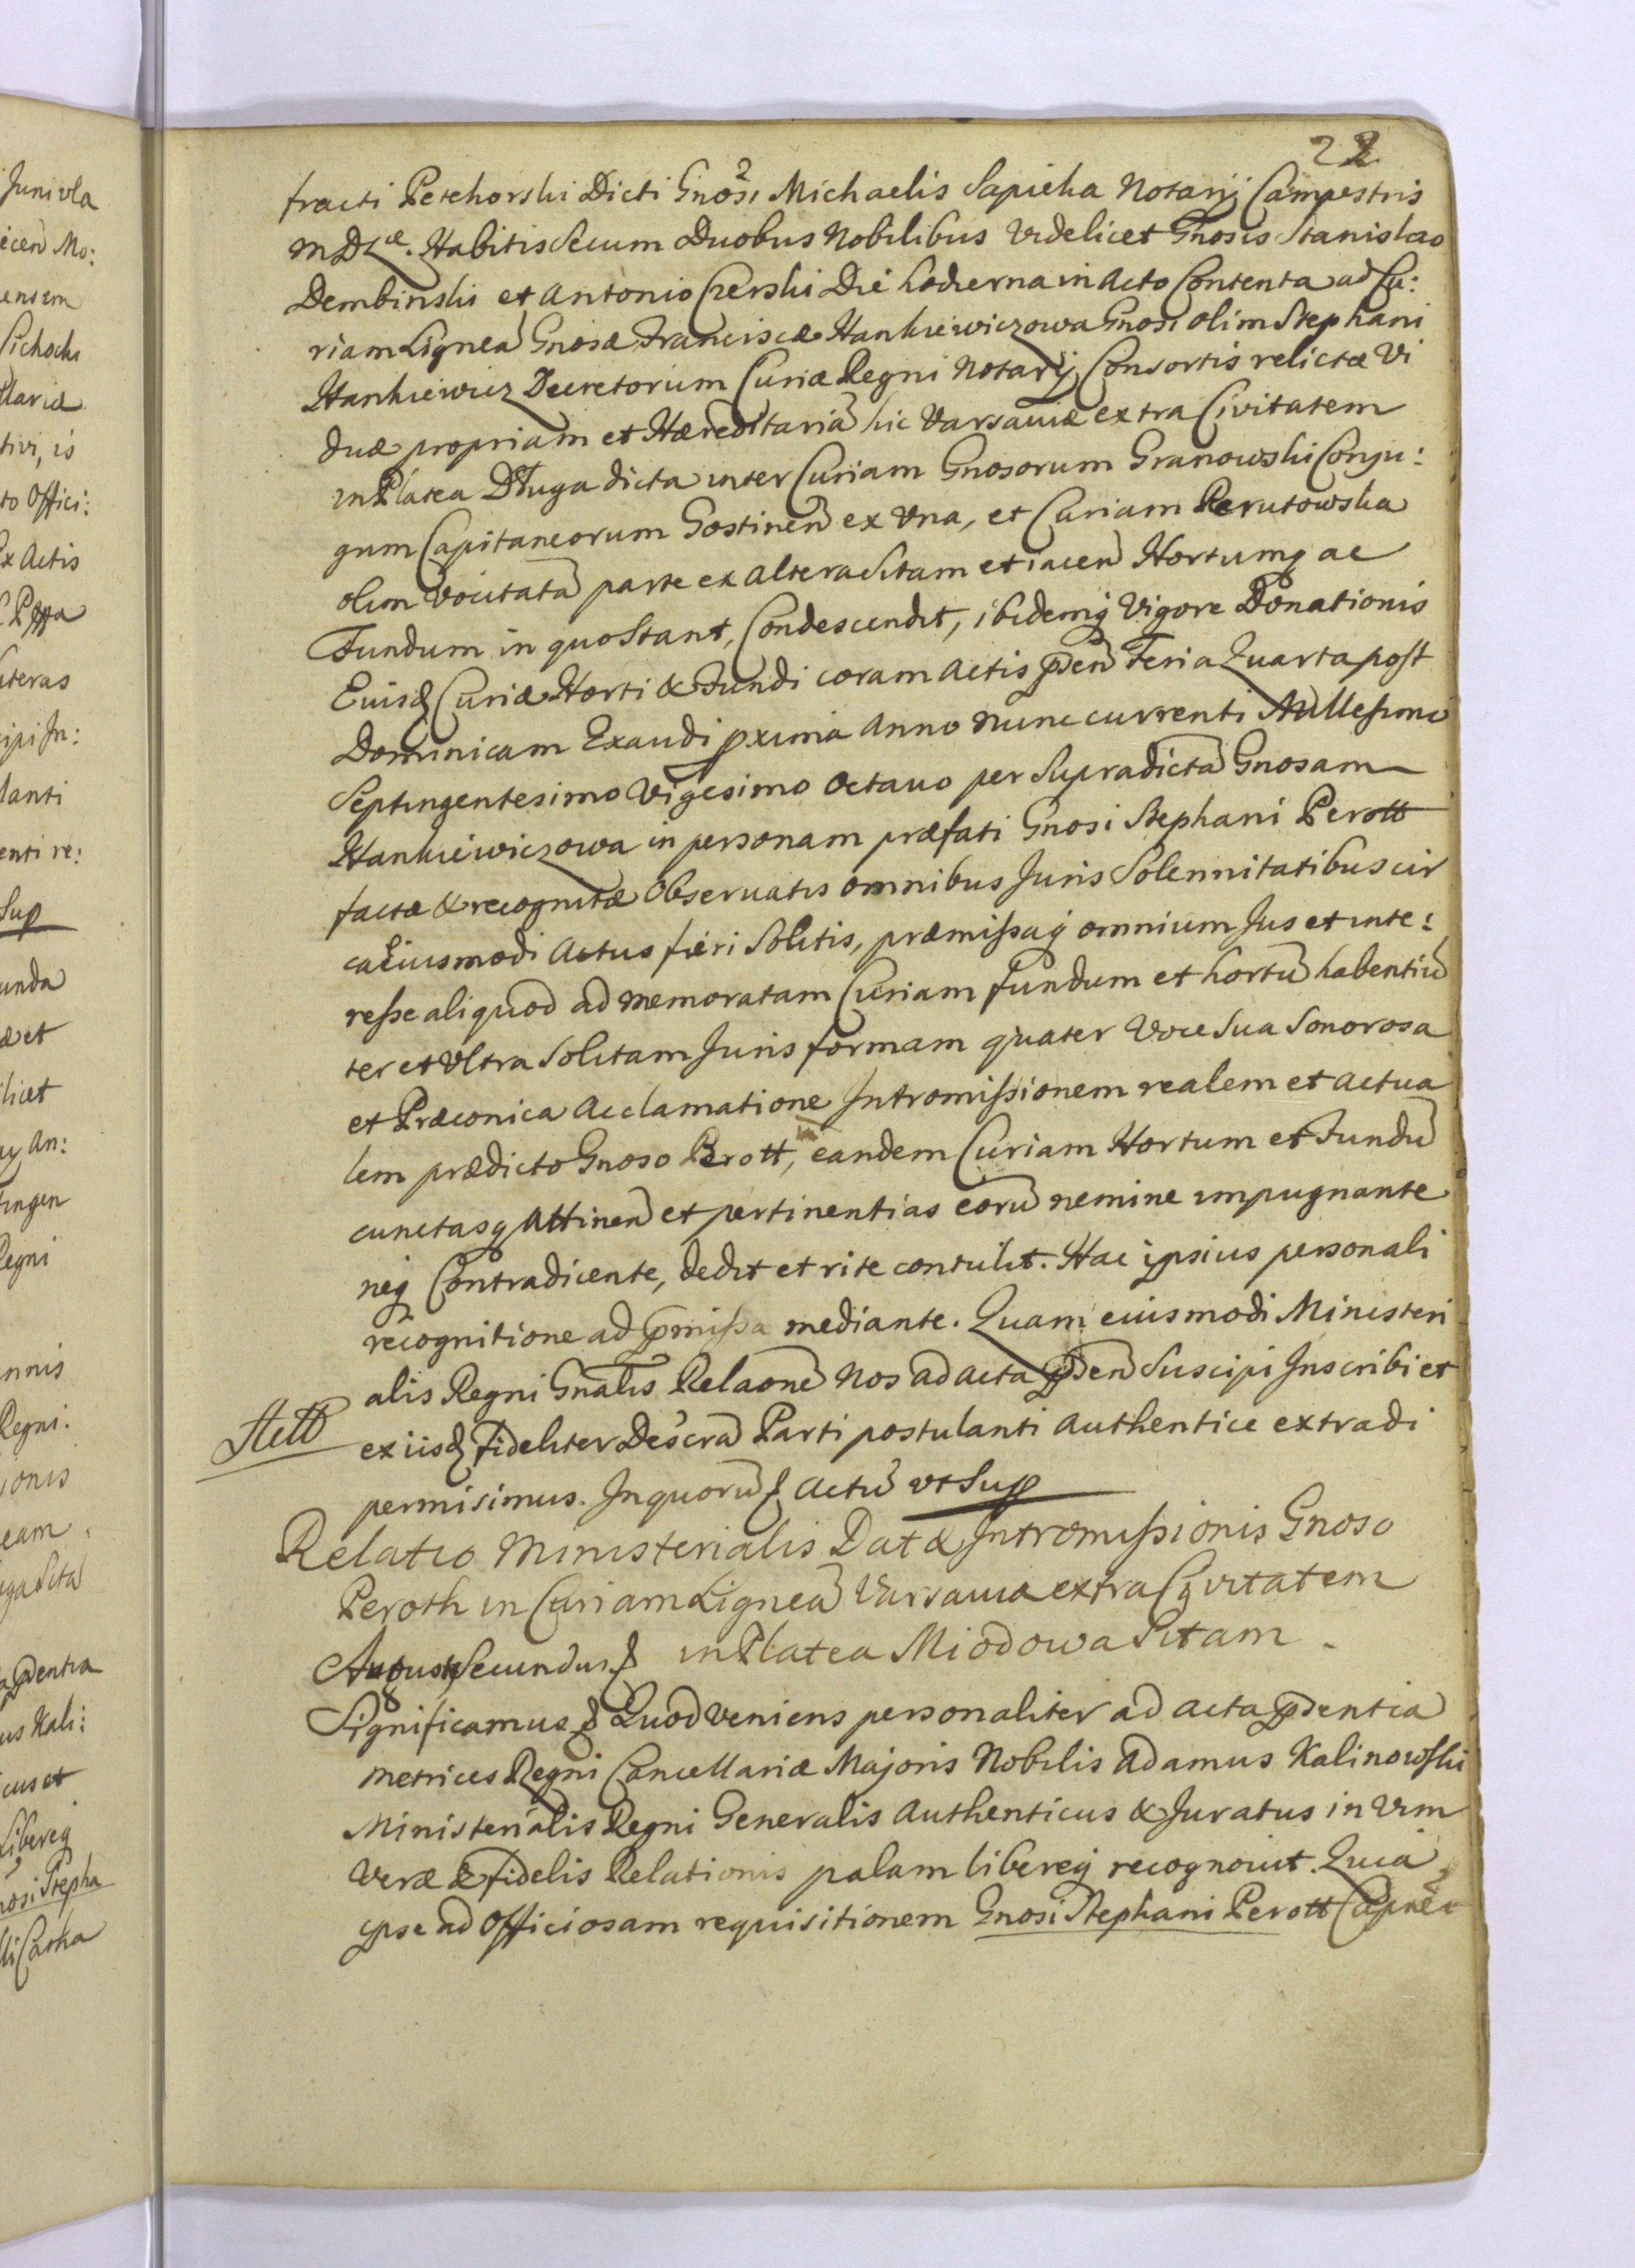 22
fracti Petyhorski Dicti Gnosi Michaelis Sapieha Notarij Campestris
M D Læ. Habitis Secum Duobus Nobilibus videlicet Gnosis Stanislao
Dembinski et Antonio Czerski Die hodierna in Acto Contenta ad Cu:
riam Ligneã Gnosæ Franciscæ Hankiewiczowa Gnosi olim Stephani
Hankiewicz Decretorum Curiæ Regni Notarij Consortis relictæ Vi
duæ propriam et Hæreditariã hic Varsaviæ extra Civitatem
in Platea Długa dicta inter Curiam Gnosorum Granowski Conju:
gum Capitaneorum Gostinen̄ ex Vna, et Curiam Perutowska
olim Vocitatã parte ex altera Sitam et iacen̄ Hortumq̨ ac
Fundum in quo Stant, Condescendit, ibidemq̨ Vigore Donationis
Eiusd Curiæ Horti & Fundi coram Actis p̄en̄ Feria Quarta post
Dominicam Exaudi pxima Anno nunc currenti Millesimo
Septingentesimo Vigesimo Octavo per Supradictã Gnosam
Hankiewiczowa in personam præfati Gnosi Stephani Perott
factæ & recognitæ Observatis omnibus Juris Solennitatibus cir
ca Eiusmodi Actus fieri Solitis, præmissaq̨ omnium Jus et inte:
resse aliquod ad memoratam Curiam fundum et hortũ habentiũ
ter et Vltra Solitam Juris formam quater Voce Sua Sonorosa
et Præconica Acclamatione Intromissionem realem et Actua
lem prædicto Gnoso Perott, in eandem Curiam Hortum et Fundũ
cunctasq̨ Attinen̄ et pertinentias eorũ nemine impugnante
neq̨ Contradicente, dedit et rite contulit. Hac ipsius personali
recognitione ad p̄missa mediante. Quam eiusmodi Ministeri
alis Regni Gnalis Relaõne Nos ad Acta p̄den̄ Suscipi Inscribi et
ex iisd Fideliter Descrã Parti postulanti Authentice extradi
permisimus. In quorũ & Actũ vt Sup
Relatio Ministerialis Datæ Intromissionis Gnoso
Peroth in Curiam Ligneã Varsaviæ extra Civitatem
in Platea Miodowa Sitam.
August9 Secundus &
Significamus & Quod Veniens personaliter ad Acta p̄dentia
Metrices Regni Cancellariæ Majoris Nobilis Adamus Kalinowski
Ministerialis Regni Generalis Authenticus & Juratus in Vim
Veræ & fidelis Relationis palam libereq̨ recognovit. Quia
ipse ad Officiosam requisitionem Gnosi Stephani Perott